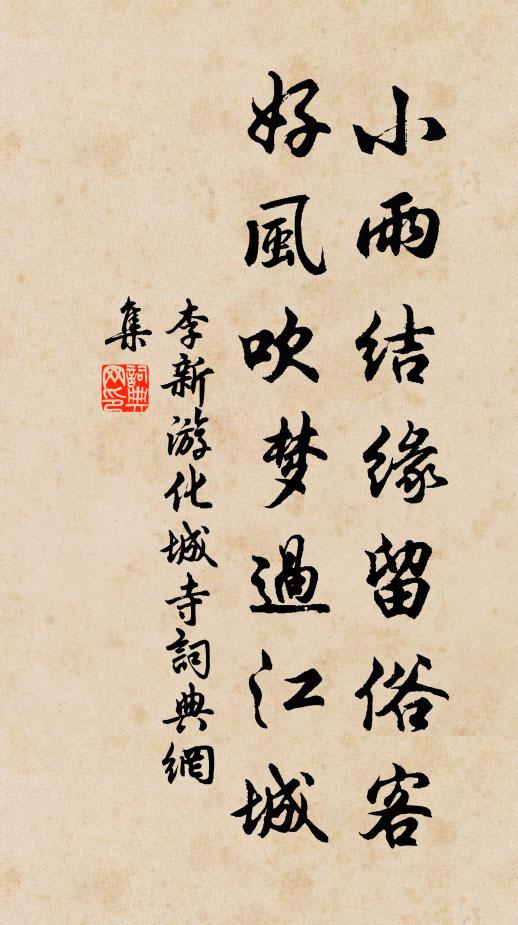 小雨结缘留俗客
好風吹梦過江城
李新游化城寺詞典網
集
詞典
网印